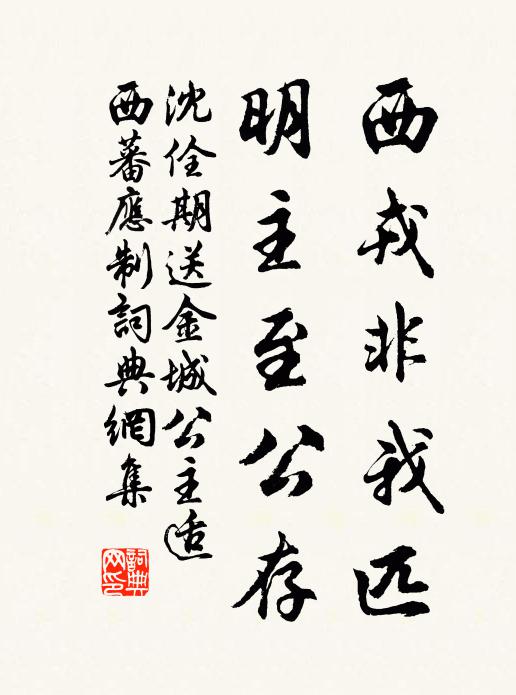 西戎非我匹
明主至公存
沈佺期送金城公主适
西蕃應制詞典網集
詞典
网印